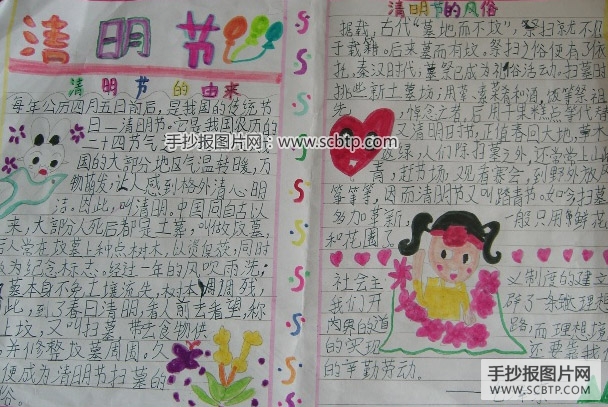 清明节
清明节的由来
每年公历四月五日前后,是我国的传统节
日—清明节。它是我国农历的
二十四节气
国的大部分地区气温转暖,万
物萌发,让人感到格外清心明
洁。因此,叫清明。中国同自古以
来,大部分人死后都是土墓,叫做坟墓,
同时
做为纪念标志。经过一年的风吹雨洗,
墓本身不免土壤流失,树木凋死,
此,到了春日清明,活人前去看望,称
上坟,又叫扫墓,带去食物供
并修整坟墓周围。久
便成为清明节扫墓的
俗。
清明节的风俗
据载,古代“墓地而不坟”,祭扫就不
于载籍。后来墓而有坟。祭扫之俗便有了
托。秦汉时代,墓祭已成为礼俗活动。扫墓
先
清明日节,正值春回大地,
返绿。人们除扫墓外,还常常
青,赶节场,观看赛会,到野外放
筝等等,因而清明节又叫踏青节。如今扫墓
多加革新,一般只用鲜花
和花圈了
社会主义制度的建立
我们开辟了一条
的道路,而理想
的实现还要靠我
的辛勤劳动。
手抄报图片网
www.scbtp.com
手抄报图片网
WWW.SCBTP.COM